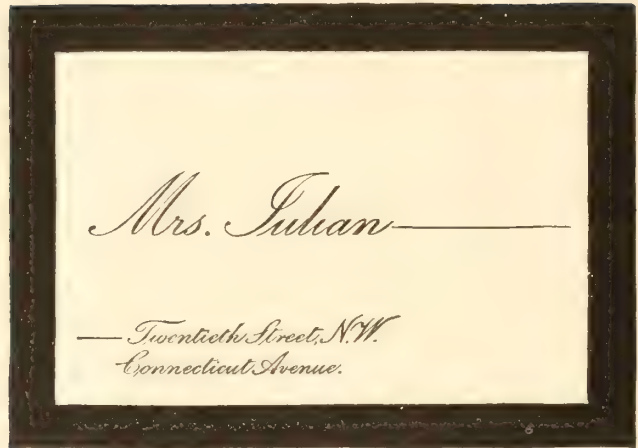 Mrs. Julian
Twentieth Street, N.W.
Connecticut Avenue.